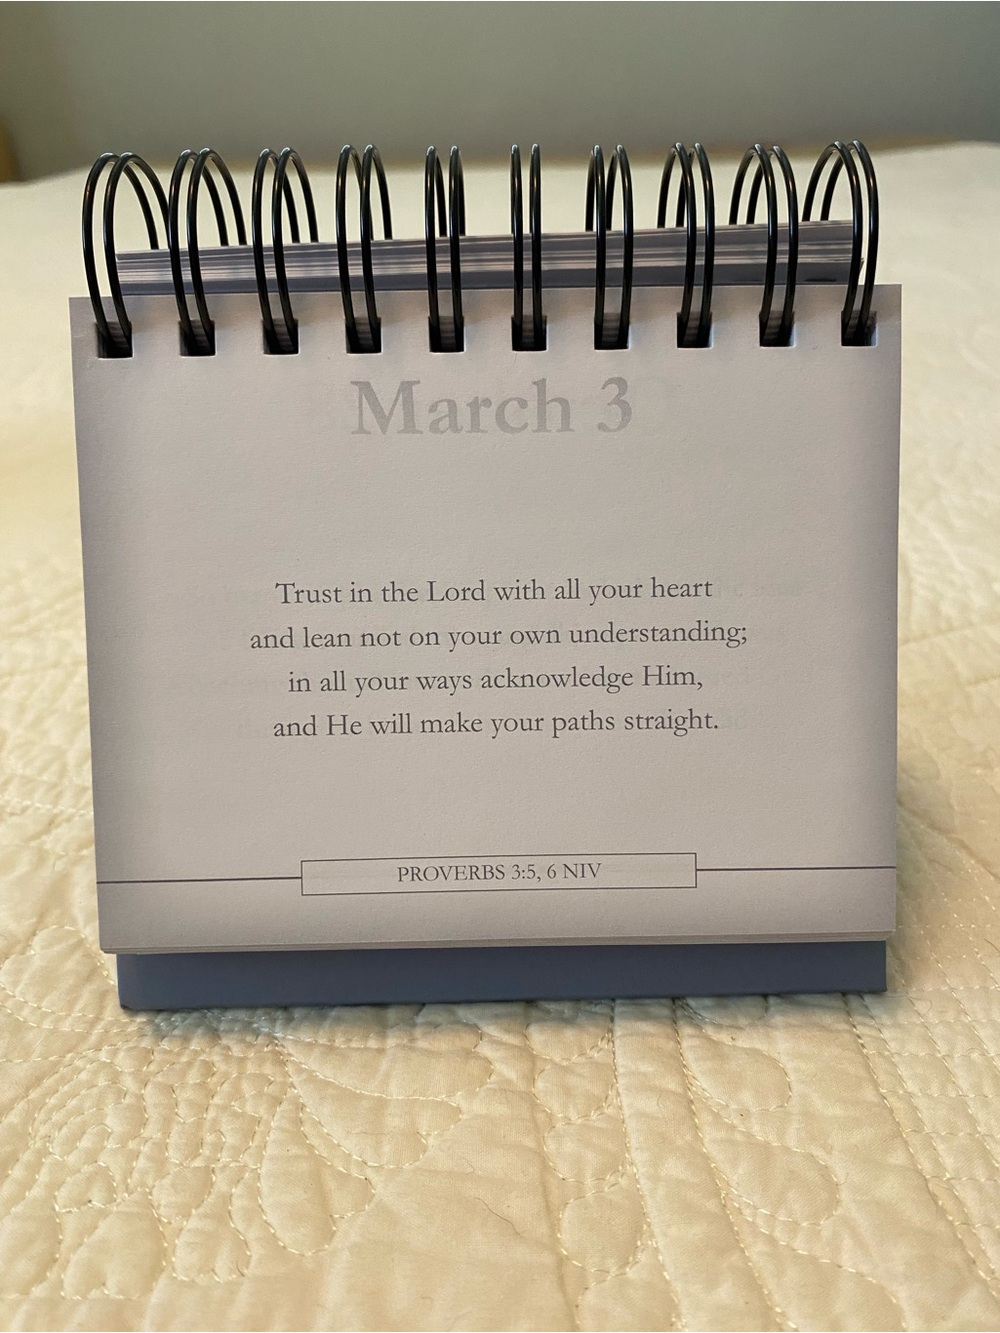 March 3
Trust in the Lord with all your heart
and lean not on your own understanding;
in all your ways acknowledge Him,
and He will make your paths straight.
PROVERBS 3:5, 6 NIV